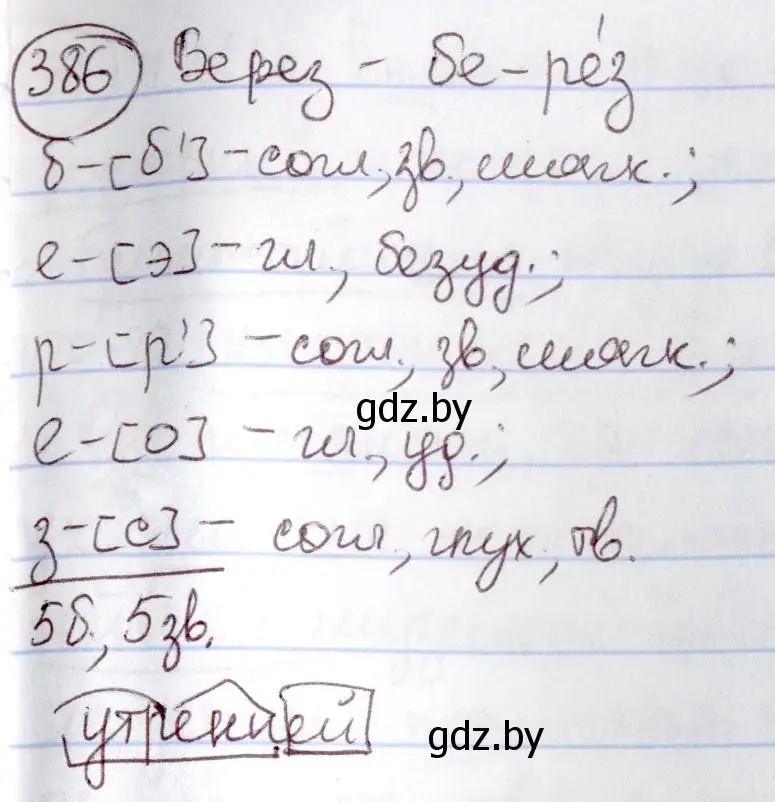 386 Берез - бе-ре́з
б-[б']-согл, зв., мягк.;
е-[э]-гл., безуд.;
р-[р']-согл., зв, мягк.;
gdz.by
е-[о]-гл, уд.;
з-[с]-согл, глух, тв.
5б, 5зв.
утренней
gdz.by